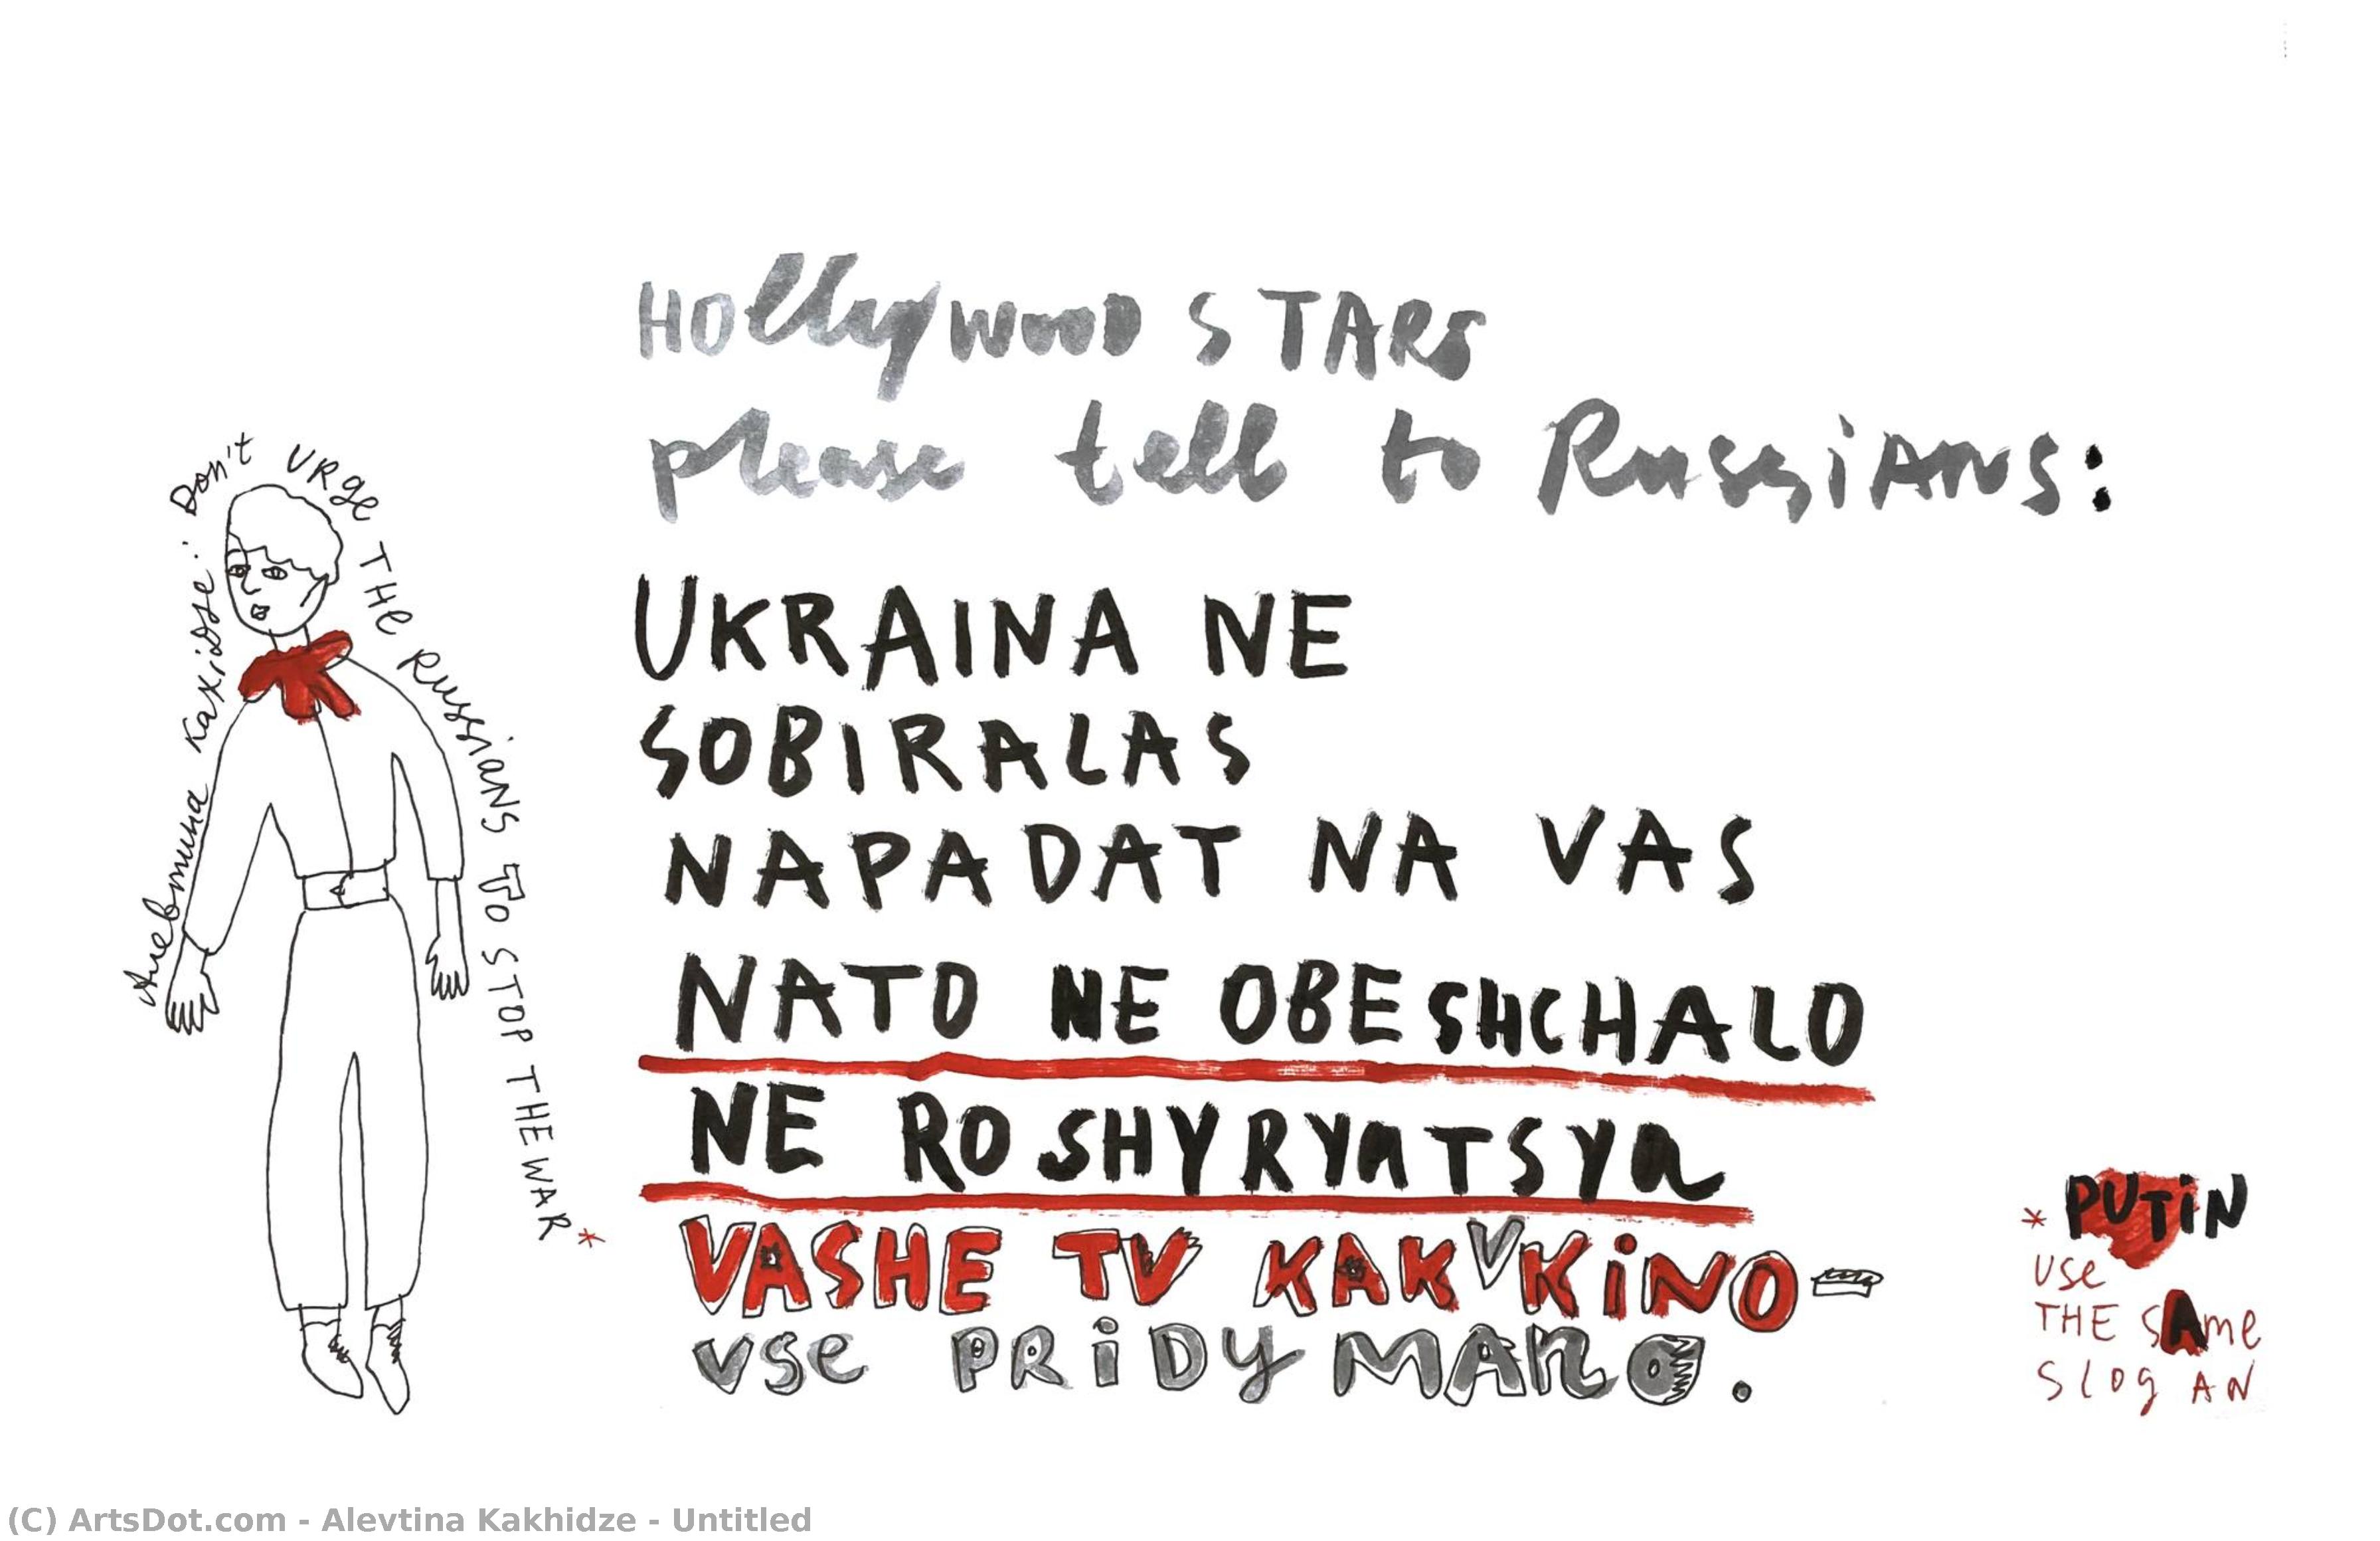 Hollywood STARS
please tell to RussiANS:
UKRAINA NE
SOBIRALAS
NAPADAT NA VAS
NATO NE OBESHCHALO
NE ROSHYRYATSYA
VASHE TV KAK V KiNO-
vse PRiDYMANO.
Алевтина Кахідзе: Don't URge THe RussiANS TO STOP THE WAR*
* PUTiN
use
THE SAme
SlOg AN
(C) ArtsDot.com - Alevtina Kakhidze - Untitled